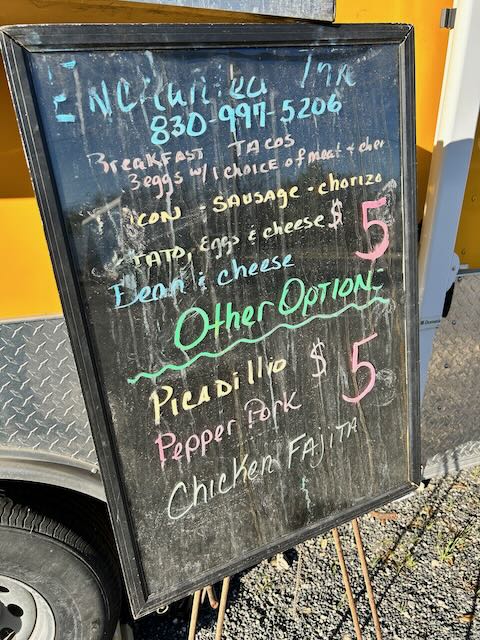 830-997-5206
BreakFAST TACOS
3eggs w/1 CHOICE of meat & cher
ICON - SAUSAGE - chorizo
TATO, Eggs & cheese $5
Bean & cheese
Other OPTION
PicaDillio $5
Pepper Pork
Chicken FAJITA